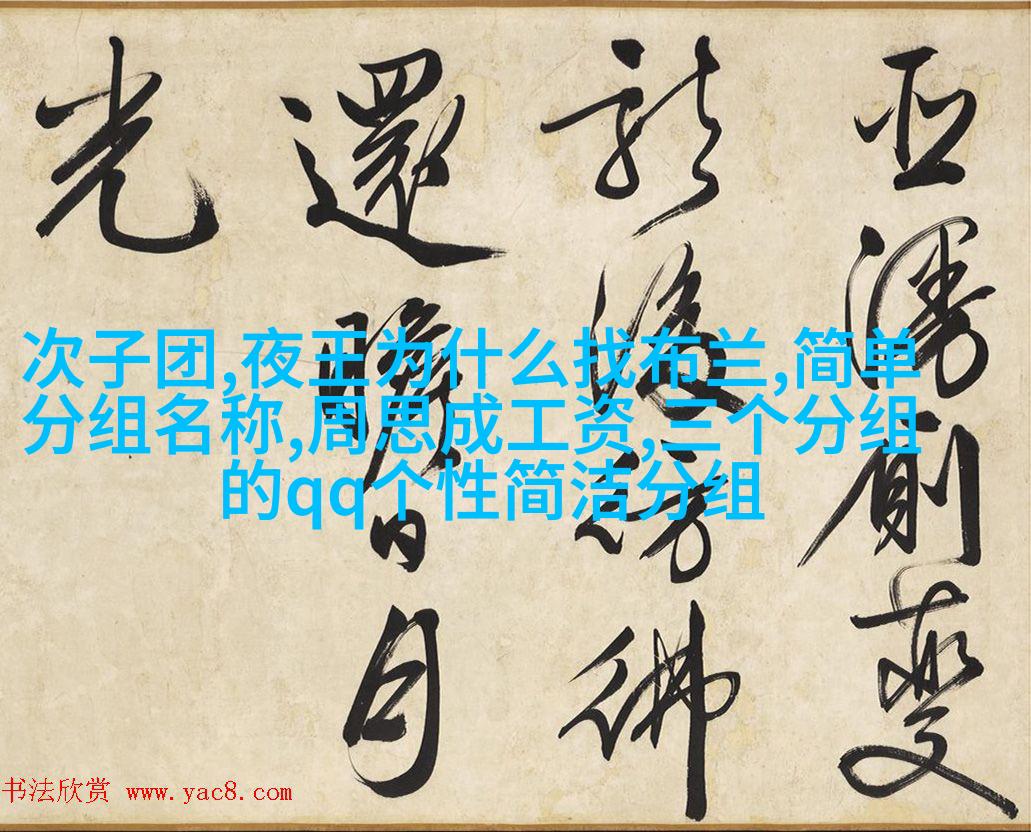 次子团,夜王为什么找布兰,简单
分组名称,周思成工资,三个分组
的qq个性简洁分组
變
彷彿
還瞻日月
光
书法欣赏 www.yac8.com